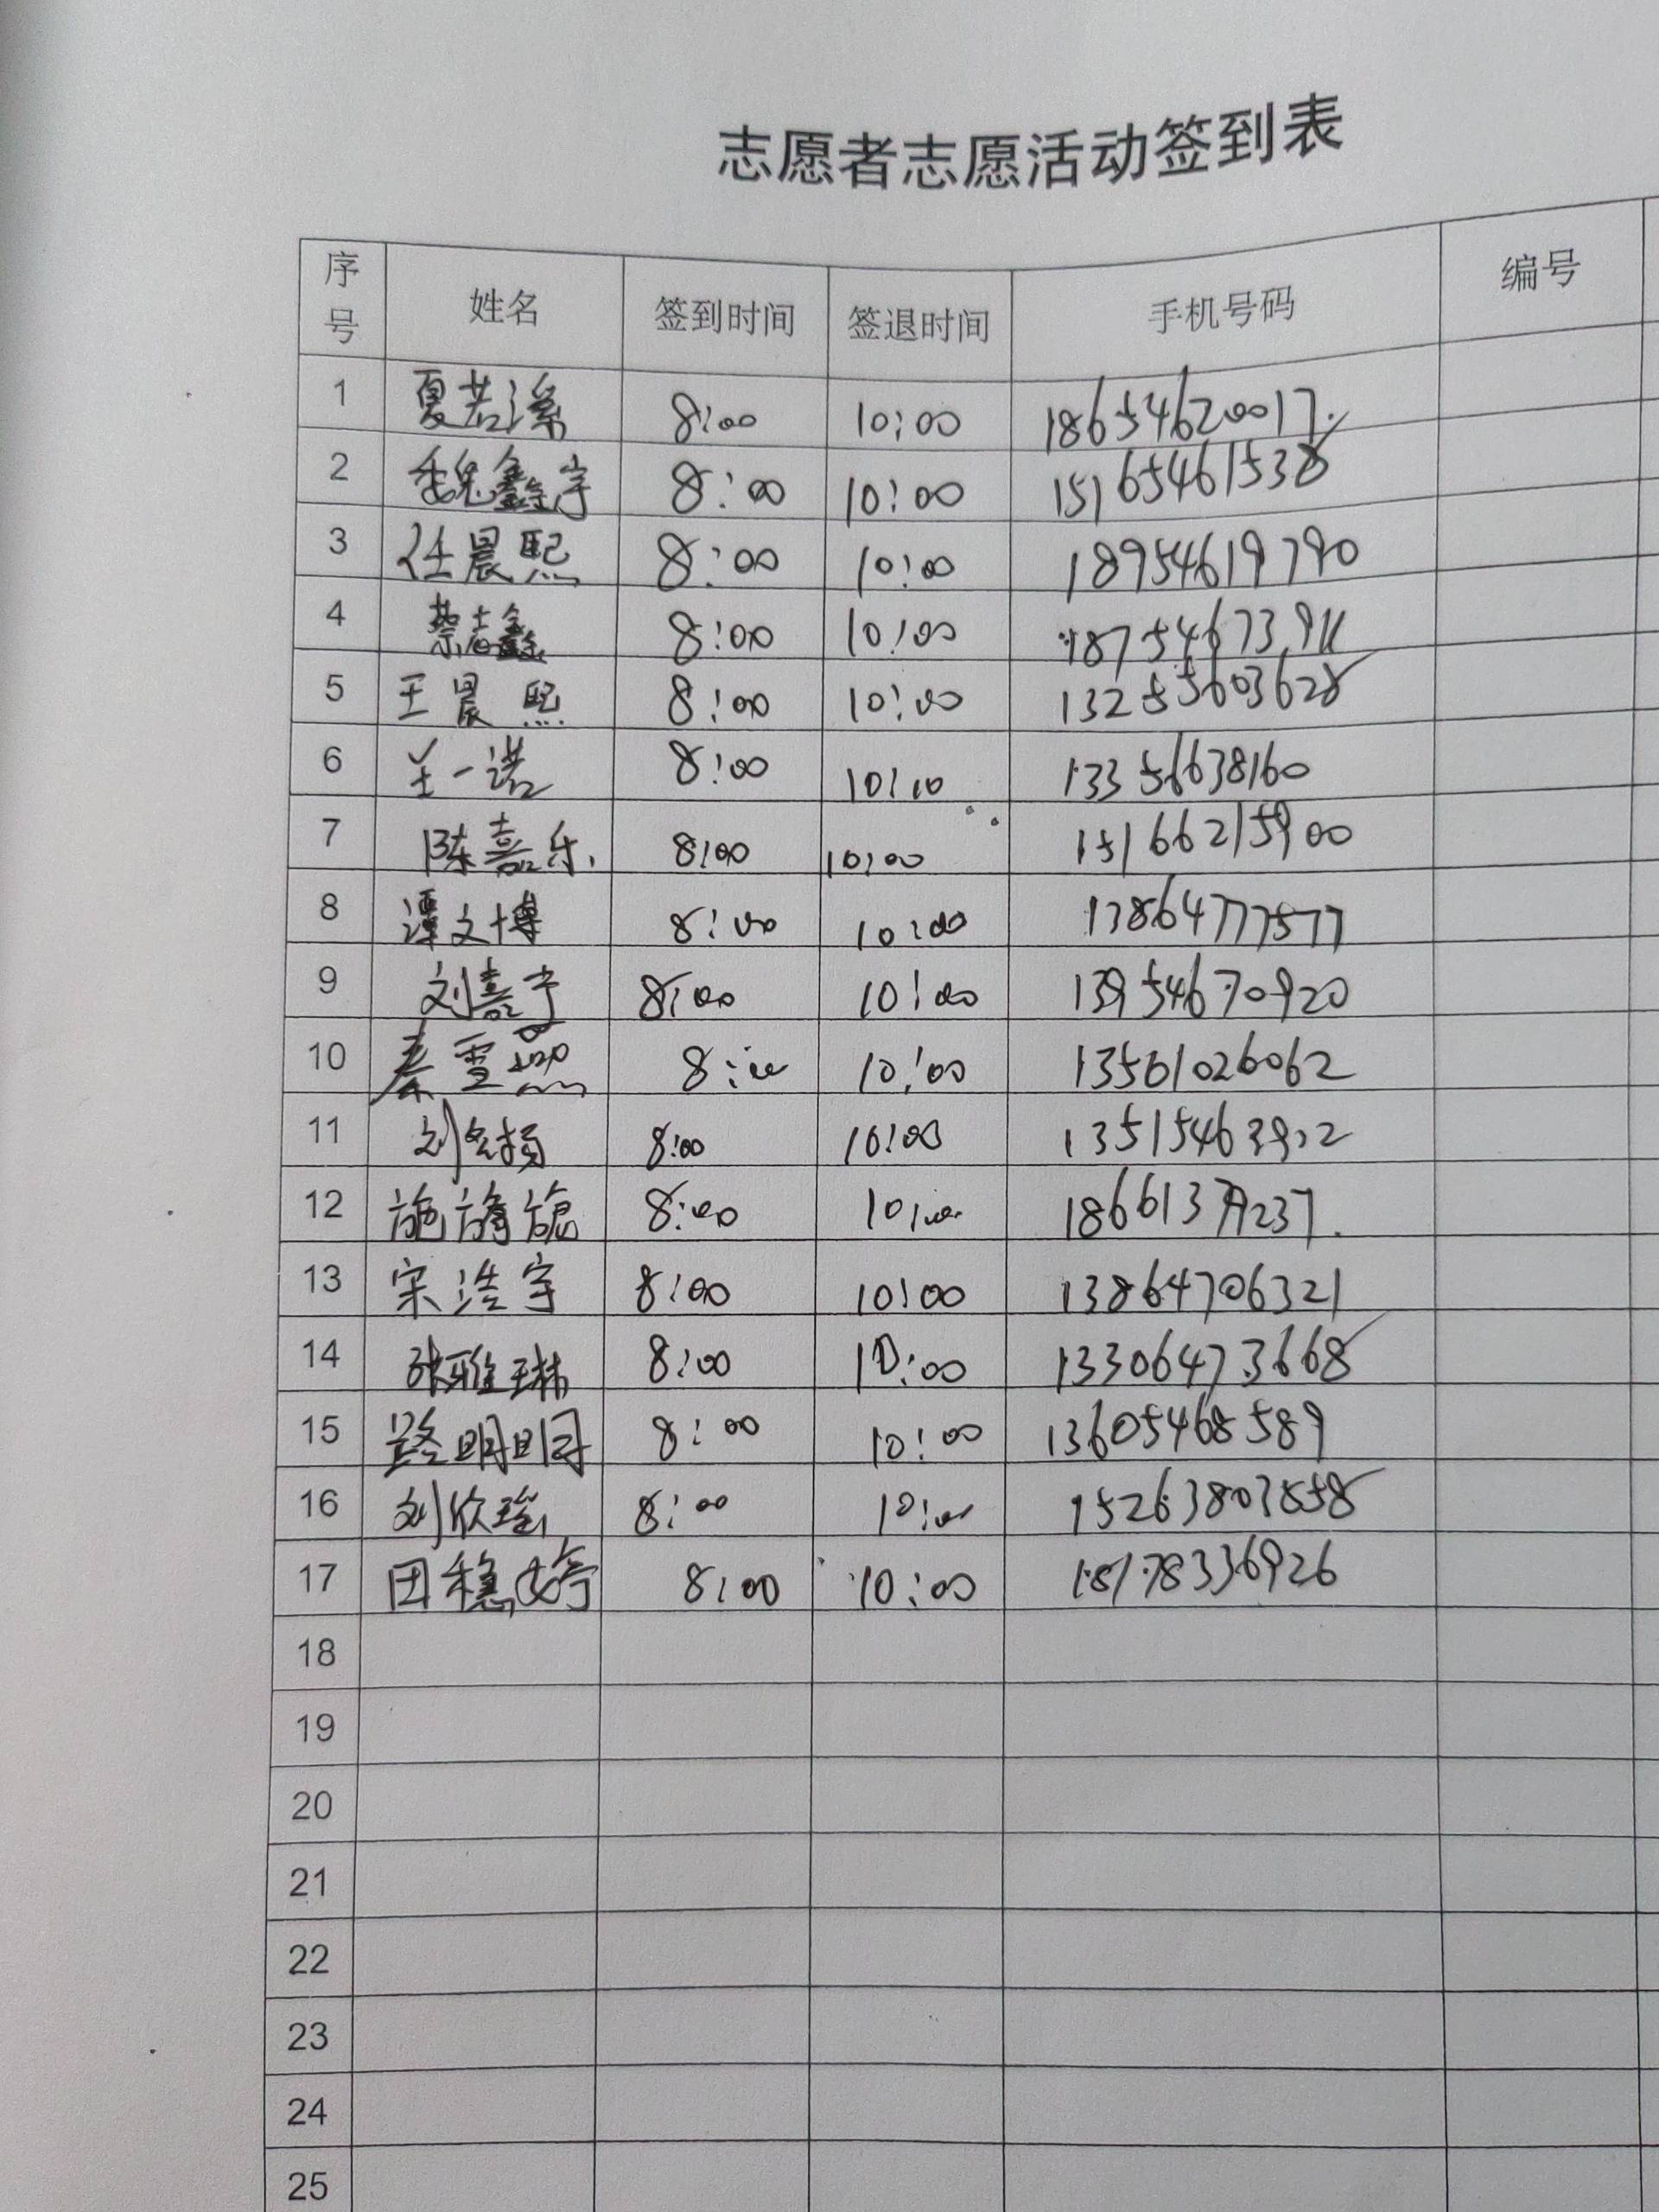 志愿者志愿活动签到表
序号 姓名 签到时间 签退时间 手机号码 编号
1 夏若溪 8:00 10:00 18654620017.
2 魏鑫宇 8:00 10:00 15165461538
3 任晨熙 8:00 10:00 18954619790
4 蔡志鑫 8:00 10:00 18754673911
5 王晨熙 8:00 10:00 13255603628
6 王一诺 8:00 10:10 13356638160
7 陈嘉乐 8:00 10:00 15166215900
8 谭文博 8:00 10:00 13864777577
9 刘嘉宇 8:00 10:00 13954670920
10 秦雪 8:00 10:00 13561026062
11 刘名扬 8:00 10:00 13515463912
12 施 8:00 10:00
13 宋浩宇 8:00 10:00 13864706321
14 张雅琳 8:00 10:00 13306473668
15 路明明 8:00 10:00 13605468589
16 刘欣瑶 8:00 10:00 15263803858
17 田稳婷 8:00 10:00 18178336926
18
19
20
21
22
23
24
25